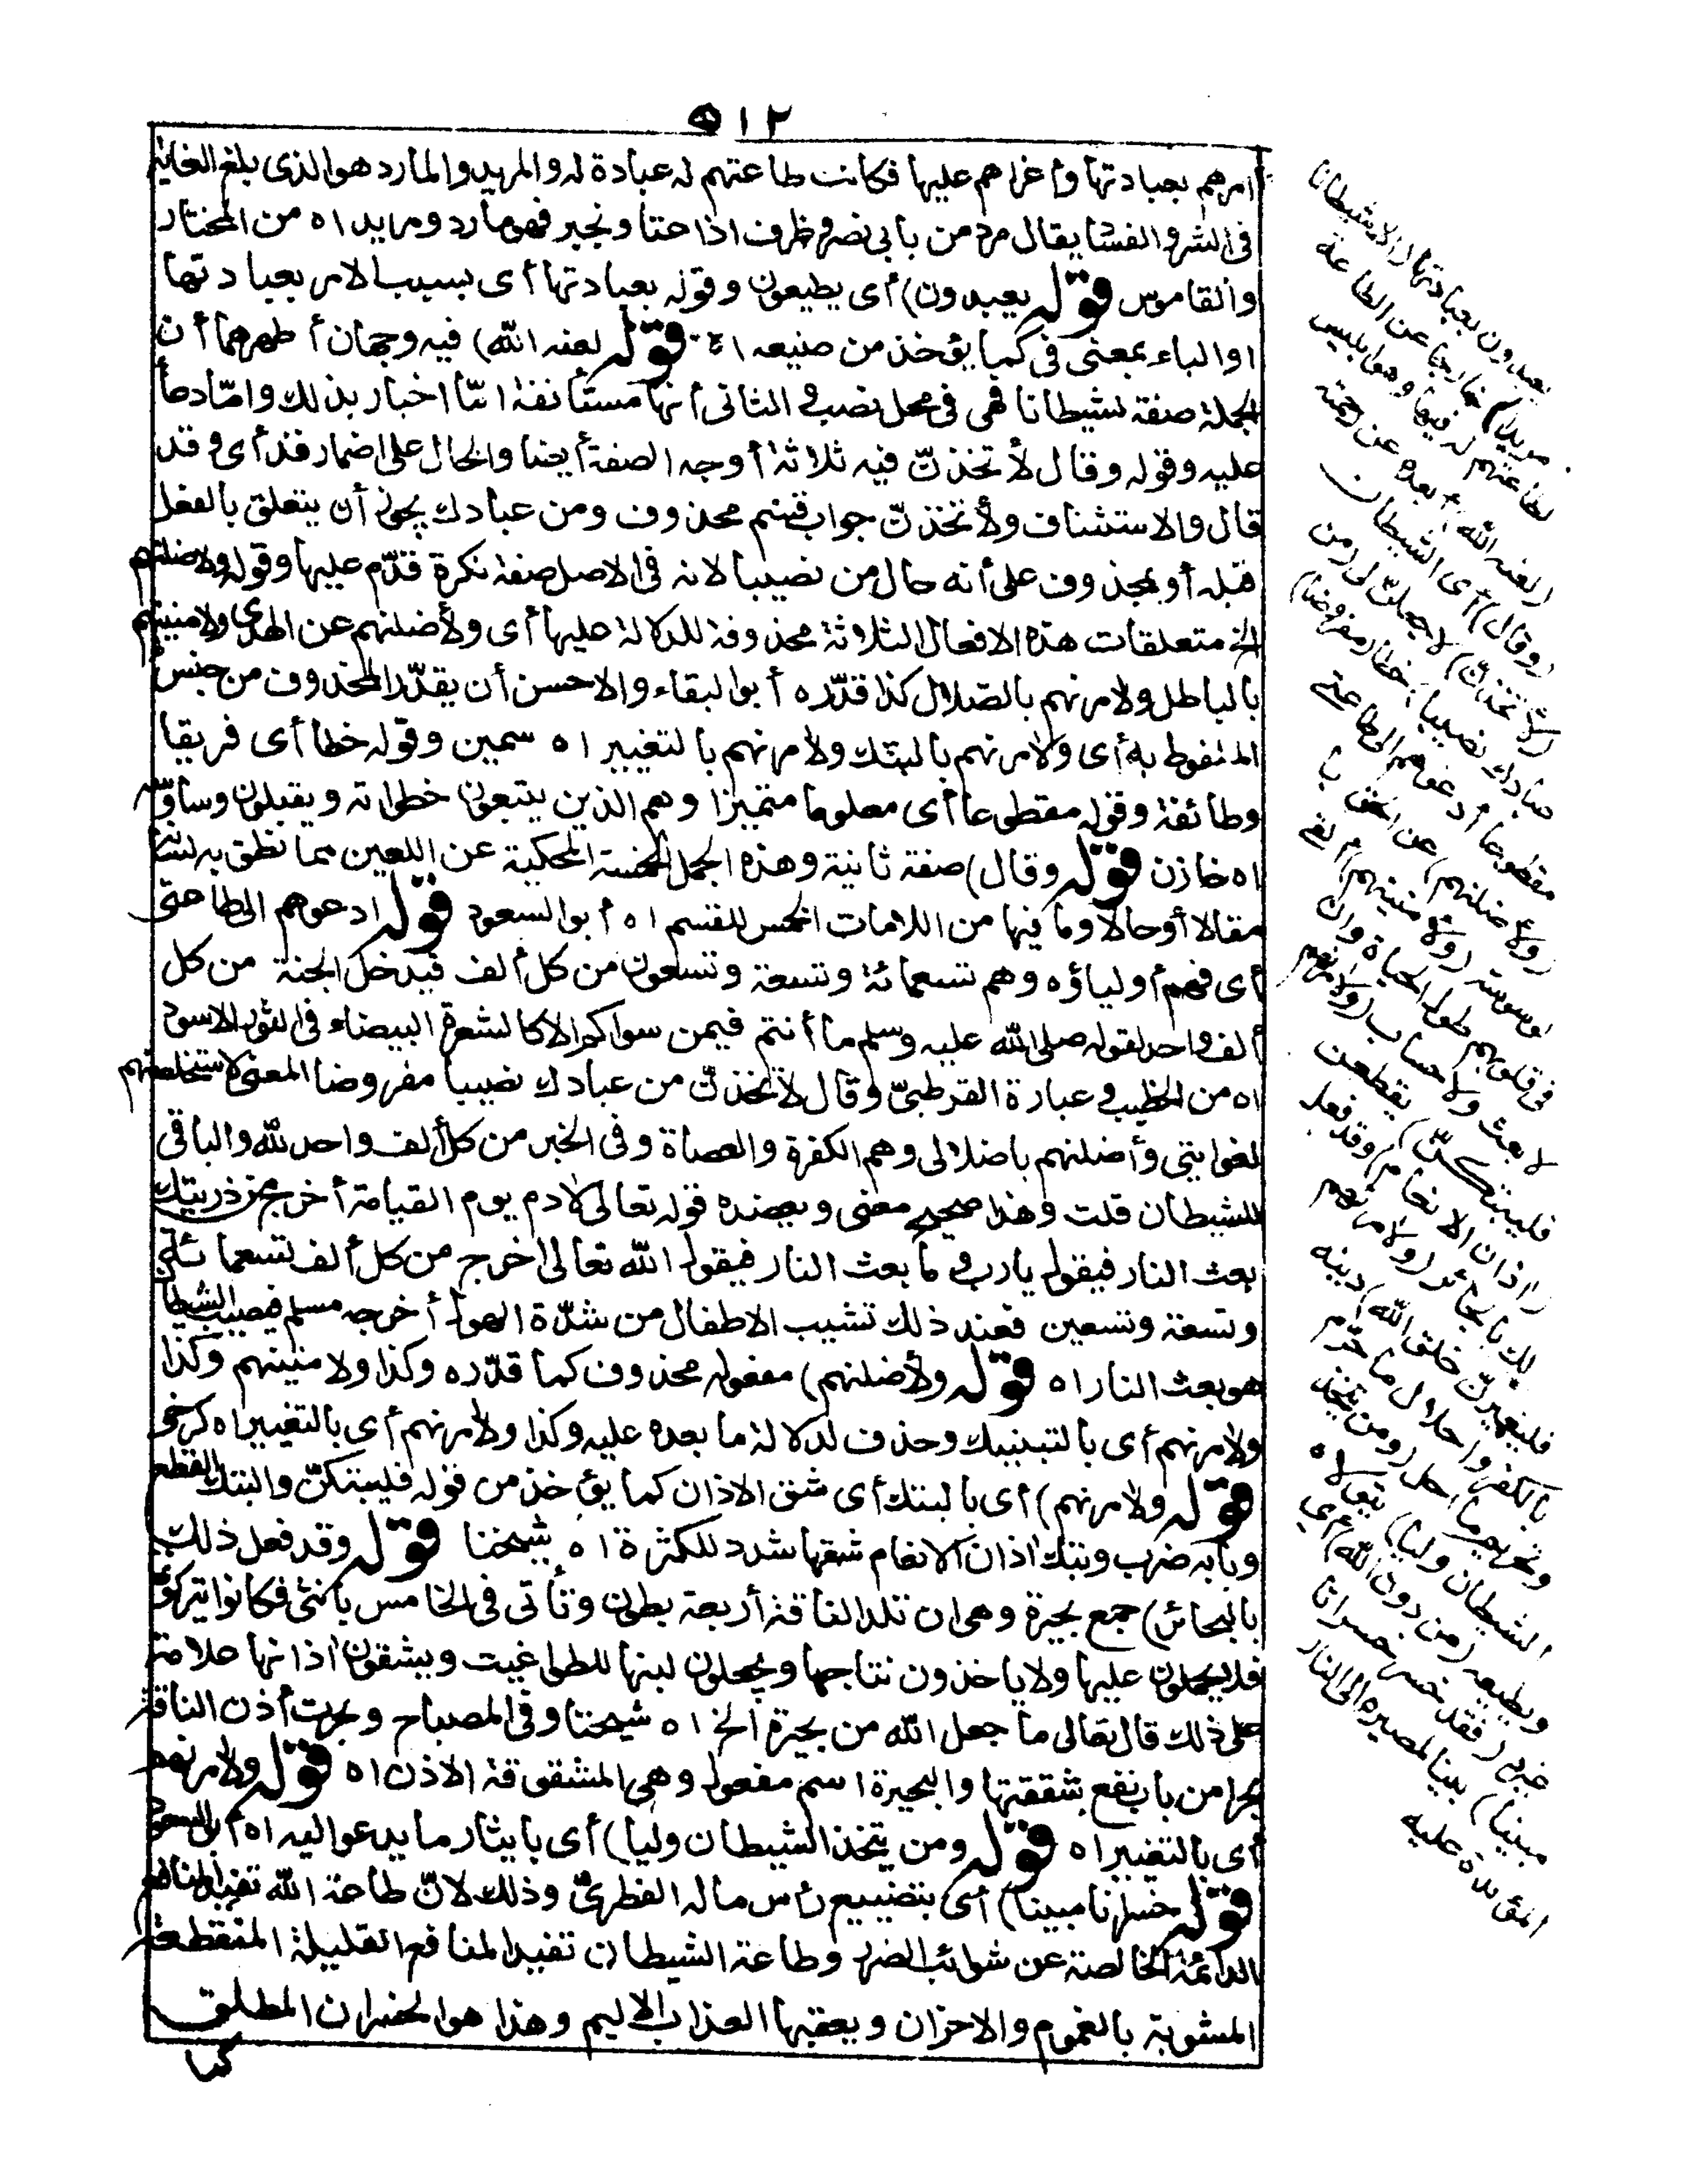 ٥١٢
امرهم بعبادتها واغراهم عليها فكانت طاعتهم له عبادة له والمريد والمارد هو الذى بلغ الغاية
فى الشر والفساد يقال مرد من بابى نصر وظرف اذا عتا وتجبر فهو مارد ومريد اه من المختار
والقاموس قوله يعبدون) أى يطيعون وقوله بعبادتها أى بسبب الامر بعبادتها
او الباء بمعنى فى كما يؤخذ من صنيعه اه قوله لعنه الله) فيه وجهان أظهرهما أن
الجملة صفة لشيطانا فهى فى محل نصب والثانى أنها مستأنفة امّا اخبار بذلك وامّا دعا
عليه وقوله وقال لأتخذنّ فيه ثلاثة أوجه الصفة أيضا والحال على اضمار قد أى وقد
قال والاستئناف ولأتخذنّ جواب قسم محذوف ومن عبادك يجوز أن يتعلق بالفعل
قبله أو بمحذوف على أنه حال من نصيبا لانه فى الاصل صفة نكرة قدّم عليها وقوله ولاضلنهم
الخ متعلقات هذه الافعال الثلاثة محذوفة للدلالة عليها أى ولأضلنهم عن الهدى ولامنينهم
بالباطل ولامرنهم بالضلال كذا قدّره أبو البقاء والاحسن أن يقدّر المحذوف من جنس
الملفوظ به أى ولامرنهم بالبتك ولامرنهم بالتغيير اه سمين وقوله حظا أى فريقا
وطائفة وقوله مقطوعا أى معلوما متميزا وهم الذين يتبعون خطواته ويقبلون وساوسه
اه خازن قوله وقال) صفة ثانية وهذه الجمل الخمسة المحكية عن اللعين مما نطق به لسانه
مقالا أو حالا وما فيها من اللامات الخمس للقسم اه أبو السعود قوله ادعوهم الى طاعتى
أى فهم أولياؤه وهم تسعمائة وتسعة وتسعون من كل ألف فيدخل الجنة من كل
ألف واحد لقوله صلى الله عليه وسلم ما أنتم فيمن سواكم الا كالشعرة البيضاء فى الثور الاسود
اه من الخطيب وعبارة القرطبىّ وقال لأتخذنّ من عبادك نصيبا مفروضا المعنى لاستخلصنهم
لغوايتى وأضلنهم باضلالى وهم الكفرة والعصاة وفى الخبر من كل ألف واحد لله والباقى
للشيطان قلت وهذا صحيح معنى ويعضده قوله تعالى لادم يوم القيامة أخرج من ذريتك
بعث النار فيقول يارب وما بعث النار فيقول الله تعالى أخرج من كل ألف تسعمائة
وتسعة وتسعين فعند ذلك تشيب الاطفال من شدّة الهول أخرجه مسلم فنصيب الشيطان
هو بعث النار اه قوله ولأضلنهم) مفعوله محذوف كما قدّره وكذا ولامنينهم وكذا
ولامرنهم أى بالتبتيك وحذف لدلالة ما بعده عليه وكذا ولامرنهم أى بالتغيير اه كرخى
قوله ولامرنهم) أى بالبتك أى شق الاذان كما يؤخذ من قوله فليبتكنّ والبتك القطع
وبابه ضرب وبتك اذان الانعام شقها شدد للكثرة اه شيخنا قوله وقد فعل ذلك
بالبحائر) جمع بحيرة وهى ان تلد الناقة أربعة بطون وتأتى فى الخامس بانثى فكانوا يتركونها
فلا يحملون عليها ولا ياخذون نتاجها ويجعلون لبنها للطواغيت ويشقون اذانها علامة
على ذلك قال تعالى ما جعل الله من بحيرة الخ اه شيخنا وفى المصباح وبحرت أذن الناقة
بحرا من باب نفع شققتها والبحيرة اسم مفعول وهى المشقوقة الاذن اه قوله ولامرنهم
أى بالتغيير اه قوله ومن يتخذ الشيطان وليا) أى بايثار ما يدعو اليه اه أبو السعود
قوله خسرانا مبينا) أى بتضييع رأس ماله الفطرىّ وذلك لانّ طاعة الله تفيد المنافع
الدائمة الخالصة عن شوائب الضرر وطاعة الشيطان تفيد المنافع القليلة المنقطعة
المشوبة بالغموم والاحزان ويعقبها العذاب الاليم وهذا هو الخسران المطلق
كما
يعبدون بعبادتها (الا شيطانا
مريدا) خارجا عن الطاعة
لطاعتهم له فيها وهو ابليس
(لعنه الله) أبعده عن رحمته
(وقال) أى الشيطان
(لأتخذنّ) لاجعلنّ لى (من
عبادك نصيبا) حظا (مفروضا)
مقطوعا أدعوهم الى طاعتى
(ولأضلنهم) عن الحق با
لوسوسة (ولأمنينهم) ألقى
فى قلوبهم طول الحياة وان
لا بعث ولا حساب (ولامرنهم
فليبتكنّ) يقطعن
(اذان الانعام) وقد فعل
ذلك بالبحائر (ولامرنهم
فليغيرنّ خلق الله) دينه
بالكفر واحلال ما حرّم
وتحريم ما احل (ومن يتخذ
الشيطان وليا) يتولاه
ويطيعه (من دون الله) أى
غيره (فقد خسر خسرانا
مبينا) بينا لمصيره الى النار
المؤبدة عليه